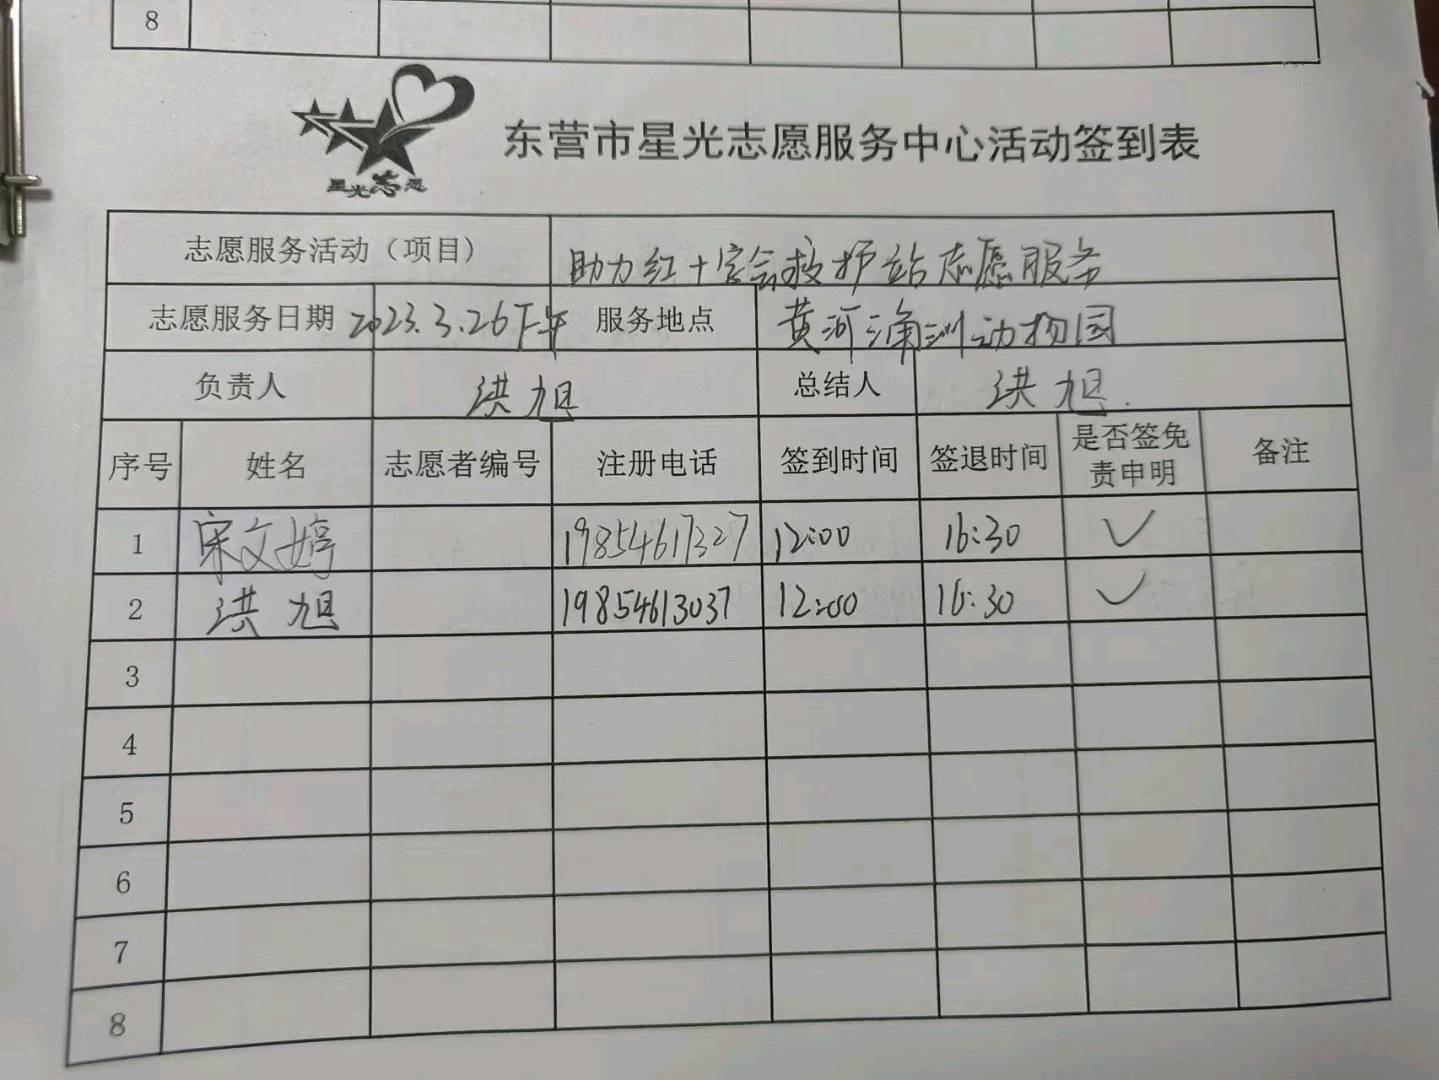 8
星光志愿
东营市星光志愿服务中心活动签到表
志愿服务活动（项目） 助力红十字会救护站志愿服务
志愿服务日期 2023.3.26下午 服务地点 黄河三角洲动物园
负责人 洪旭 总结人 洪旭.
序号 姓名 志愿者编号 注册电话 签到时间 签退时间 是否签免责申明 备注
1 宋文婷 19854617327 12:00 16:30 ✓
2 洪旭 19854613037 12:00 16:30 ✓
3
4
5
6
7
8